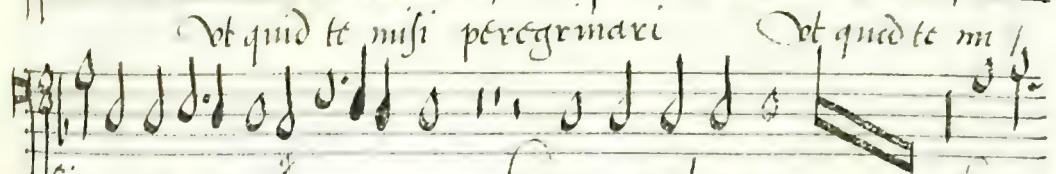 Vt quid te misi peregrinari Vt quid te mi